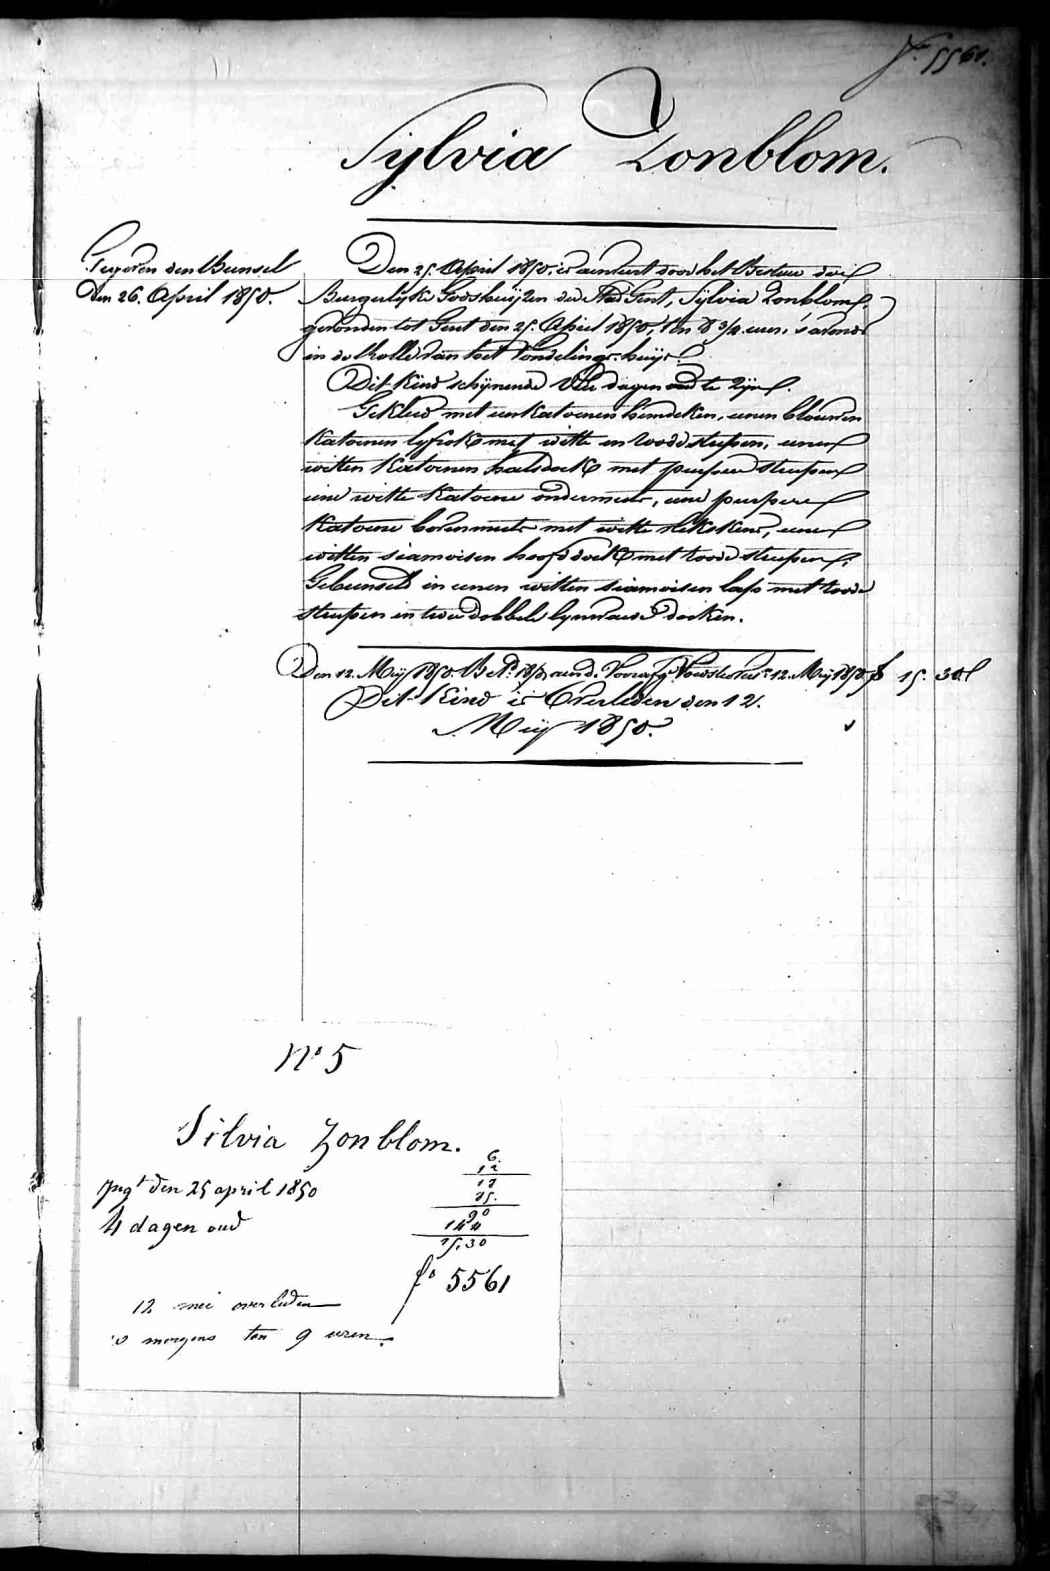 fo 5561.
Sylvia Zonblom.
Tegoven den Bunsel
den 26. April 1850.
Den 25. April 1850, is aenveert door het Bestuer der
Burgerlyke Godshuijzen der Stad Gent, Sylvia Zonblom,
gevonden tot Gent den 25. April 1850, ten 8 3/4 uren, s'avonds
in de Rolle van het Vondelings-huys.
Dit Kind schijnende vier dagen oud te zyn.
Gekleed met een katoenen hemdeken, eenen blauwen
katoenen lyfrok met witte en roode strepen, eenen
witten katoenen halsdoek met purpere strepen
eene witte katoene ondermuts, eene purpere
katoene bovenmuts met witte plekskens, eenen
witten siamoisen hoofddoek met roode strepen.
Gebunseld in eenen witten siamoisen lap met roode
strepen in twee dobbele lynwaed doeken.
Den 12. Meij 1850. 12. Meij 1850. f 15. 30
Dit Kind is Overleden den 12.
Meij 1850.
No 5
Silvia Zonblom.
6.
12
17
75.
90
144
15,30
den 25 april 1850
4 dagen oud
fo 5561
12 mei overleden
s morgens ten 9 uren.